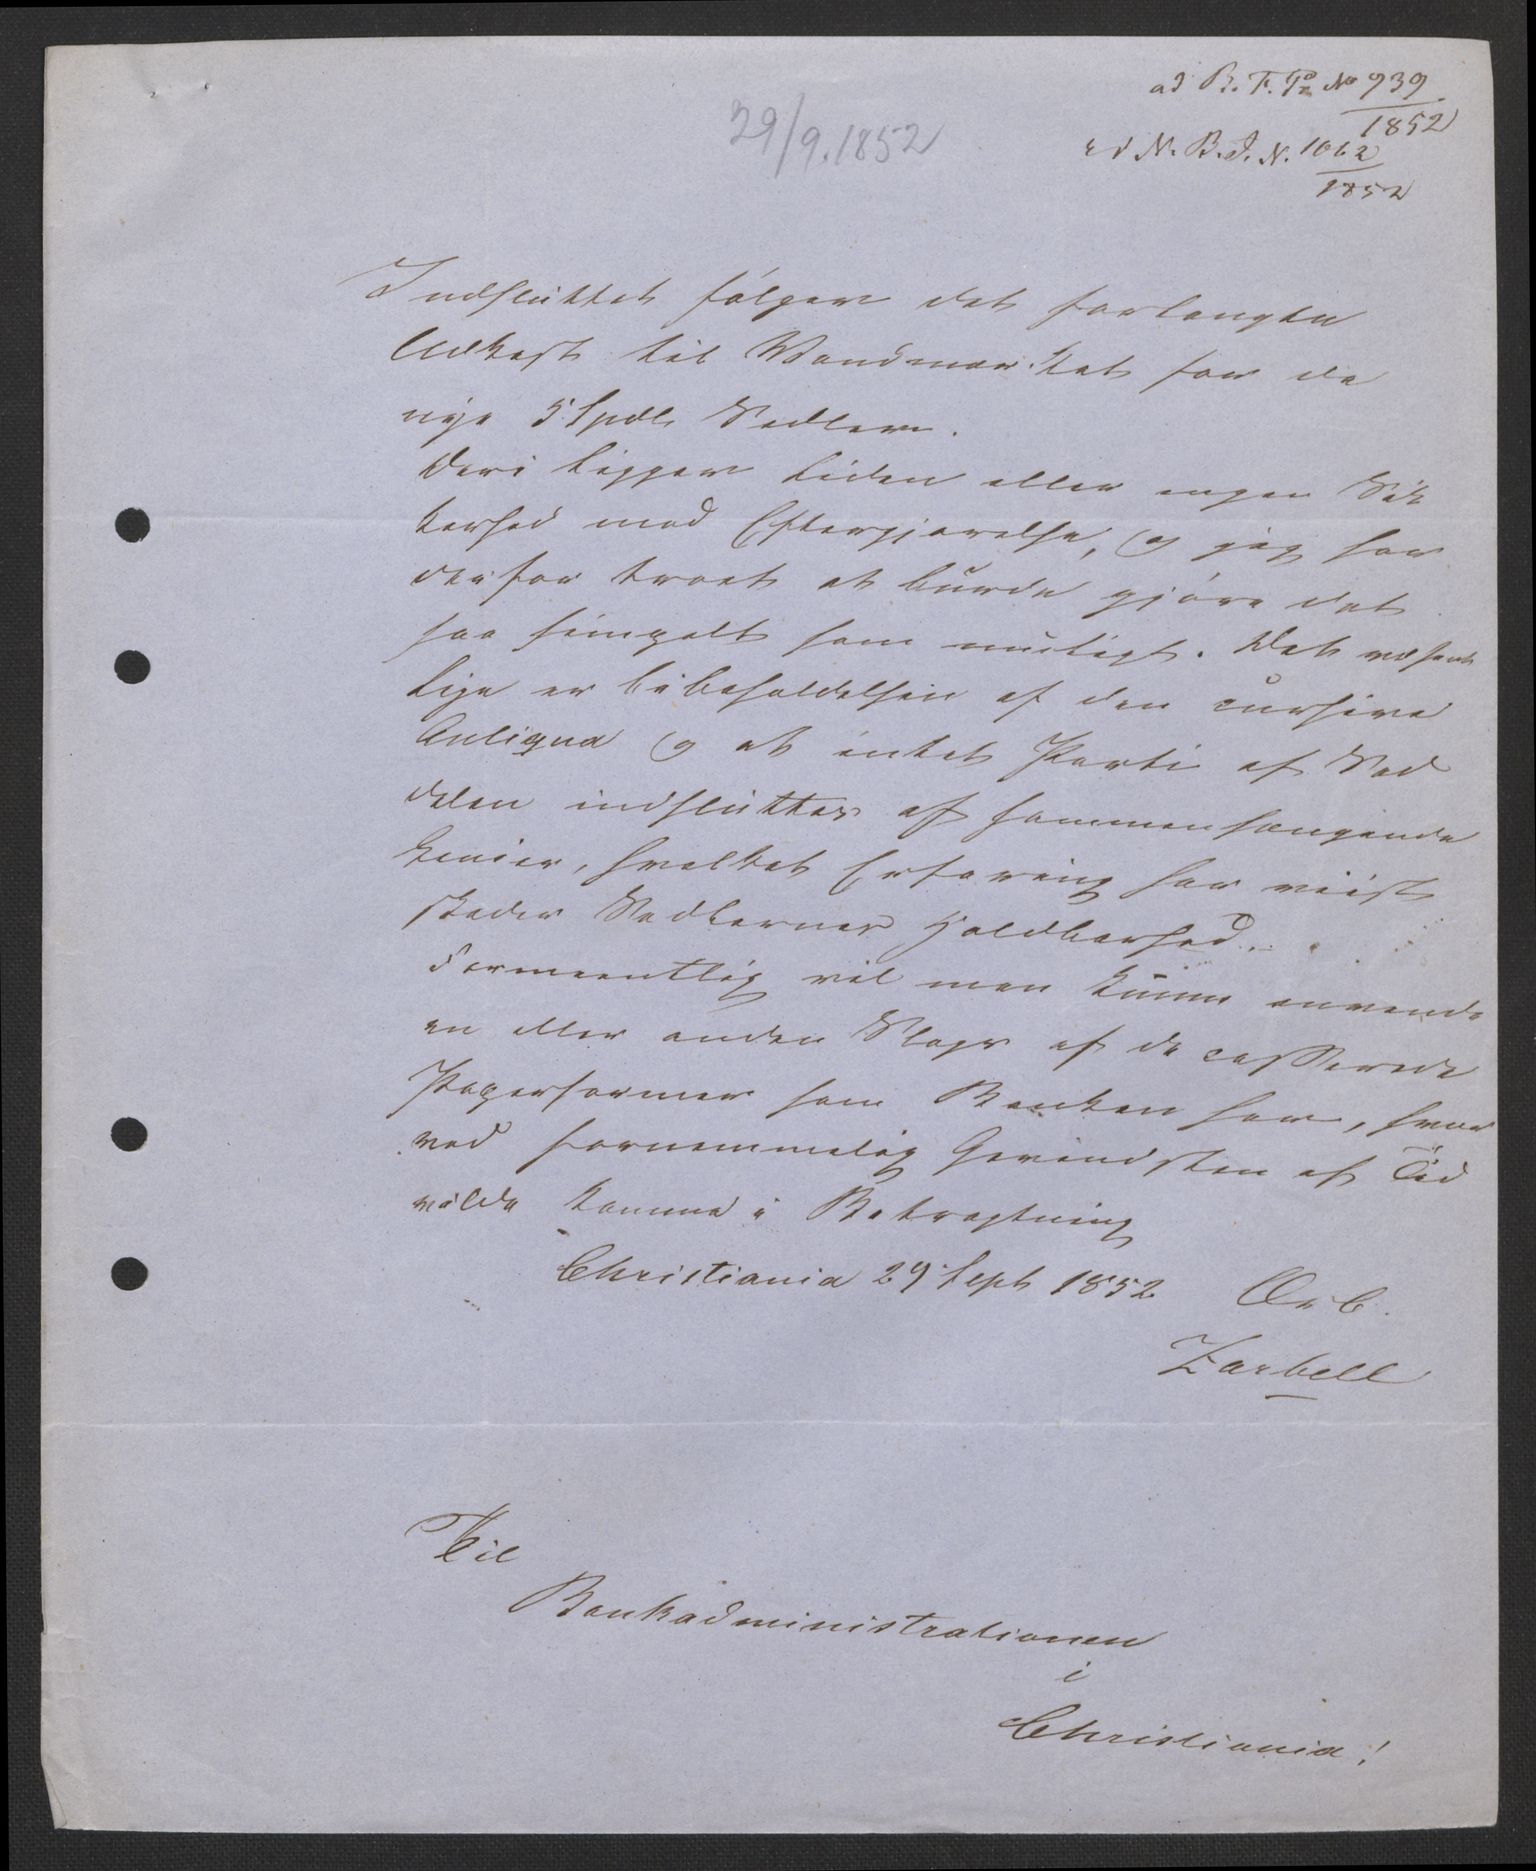 ad B. F. P. No 939
1852
ad N. B. J. N. 1062
1852
29/9. 1852
Indsluttet følger det forlangte
Udkast til Vandmærket for de
nye 5 Spdl Sedler.
Deri ligger liden eller ingen Sik
kerhed mod Eftergjørelse, og jeg har
derfor troet at burde gjøre det
saa simpelt som muligt. Det væsent
lige er bibeholdelsen af den cursive
Antiqua og at intet Parti af Sed
delen indsluttes af sammenhængende
Linier, hvilket Erfaring har viist
skader Sedlernes Holdbarhed.
Formeentlig vil man kunne anvende
en eller anden Slags af de casserede
Papirformer som Banken har, hvor
ved fornemmelig Gevindsten af Tid
vilde komme i Betragtning
Christiania 29 Sept 1852 Ærb.
Zarbell
Til
Bankadministrationen
i
Christiania!